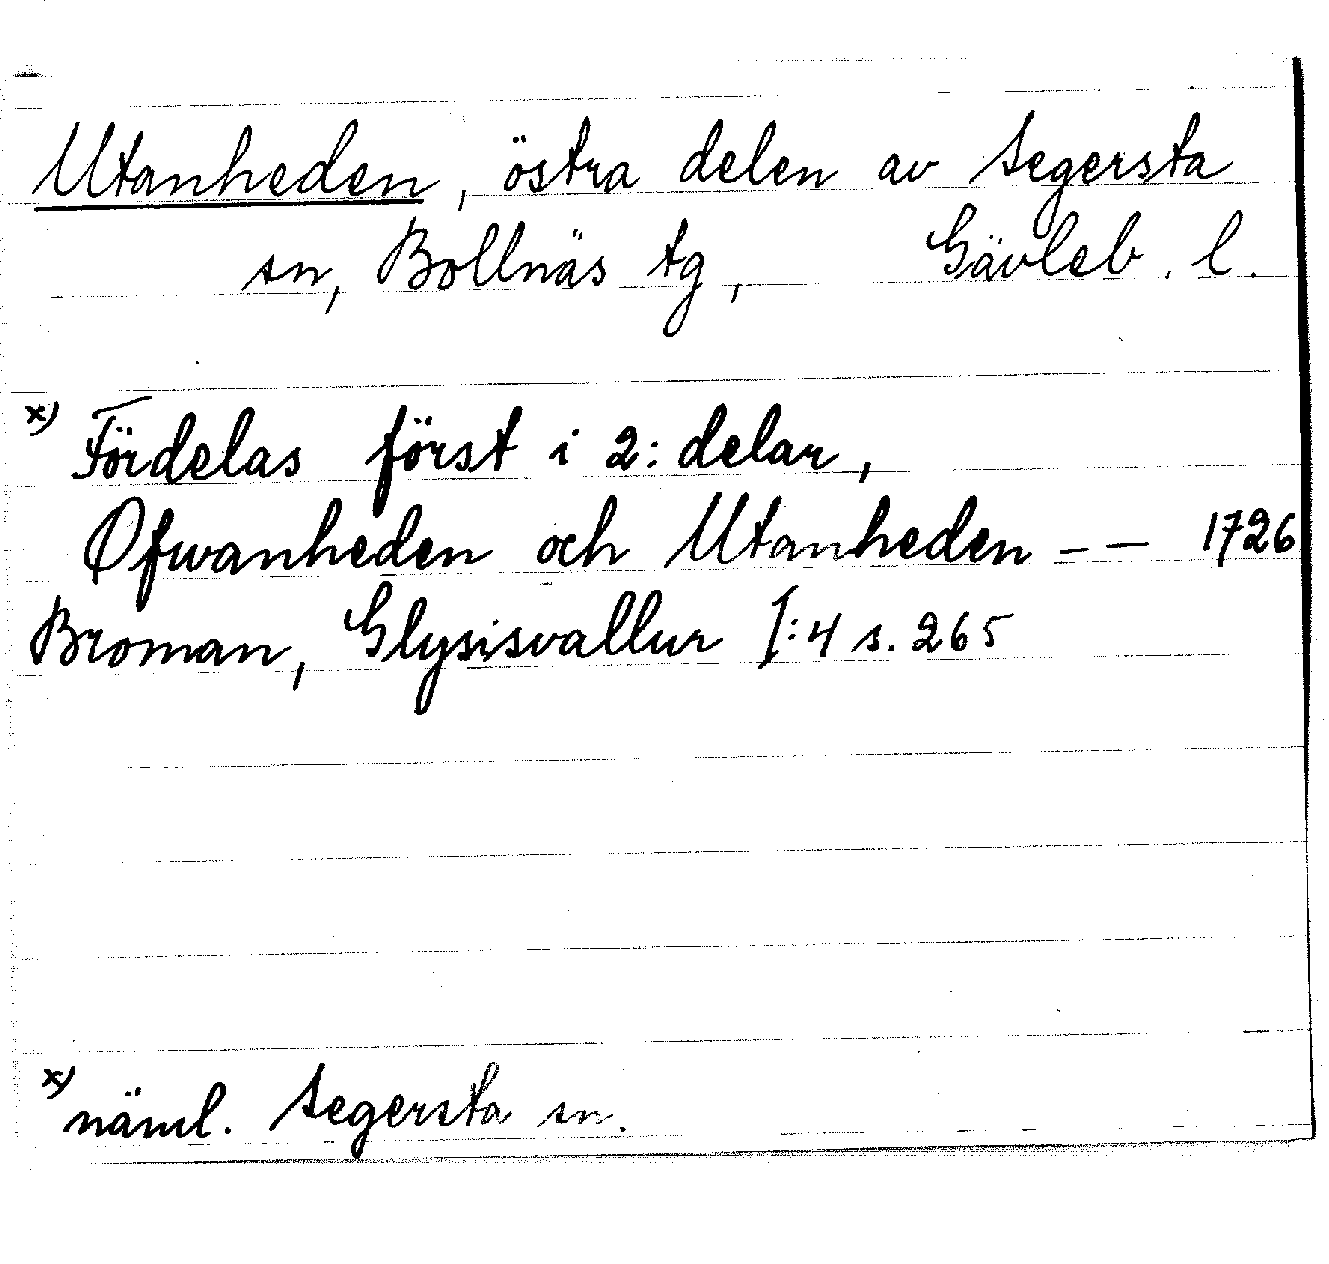 Utanheden, östra delen av Segersta
sn, Bollnäs tg, Gävleb. l.
x) Fördelas först i 2: delar,
Øfwanheden och Utanheden – – 1726
Broman, Glysisvallur I:4 s. 265
x) näml. Segersta sn.